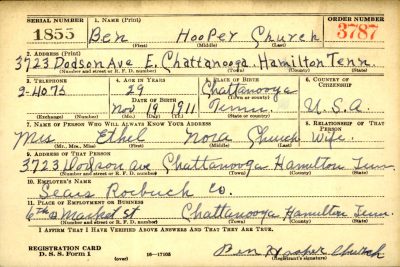 SERIAL NUMBER 1. NAME (Print) ORDER NUMBER
1855 Ben Hooper Church 3787
(First) (Middle) (Last)
2. ADDRESS (Print)
3723 Dodson Ave E. Chattanooga Hamilton Tenn.
(Number and street or R. F. D. number) (Town) (County) (State)
3. TELEPHONE 4. AGE IN YEARS 5. PLACE OF BIRTH 6. COUNTRY OF CITIZENSHIP
2-4075 29 Chattanooga
DATE OF BIRTH (Town or county)
Nov 19 1911 Tenn. U.S.A.
(Exchange) (Number) (Mo.) (Day) (Yr.) (State or country)
7. NAME OF PERSON WHO WILL ALWAYS KNOW YOUR ADDRESS 8. RELATIONSHIP OF THAT PERSON
Mrs Ethel Nora Church Wife.
(Mr., Mrs., Miss) (First) (Middle) (Last)
9. ADDRESS OF THAT PERSON
3723 Dodson Ave Chattanooga Hamilton Tenn
(Number and street or R. F. D. number) (Town) (County) (State)
10. EMPLOYER'S NAME
Sears Roebuck Co.
11. PLACE OF EMPLOYMENT OR BUSINESS
Market St Chattanooga Hamilton Tenn.
(Number and street or R. F. D. number) (Town) (County) (State)
I AFFIRM THAT I HAVE VERIFIED ABOVE ANSWERS AND THAT THEY ARE TRUE.
REGISTRATION CARD
D. S. S. Form 1 (over) 16—17105 Ben Hooper Church
(Registrant's signature)